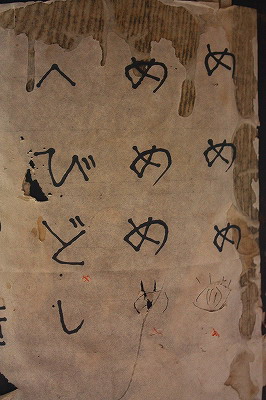 めめめ
めめ
へびどし